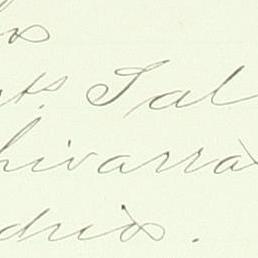 os
ts. Sal
hivarra
drix.